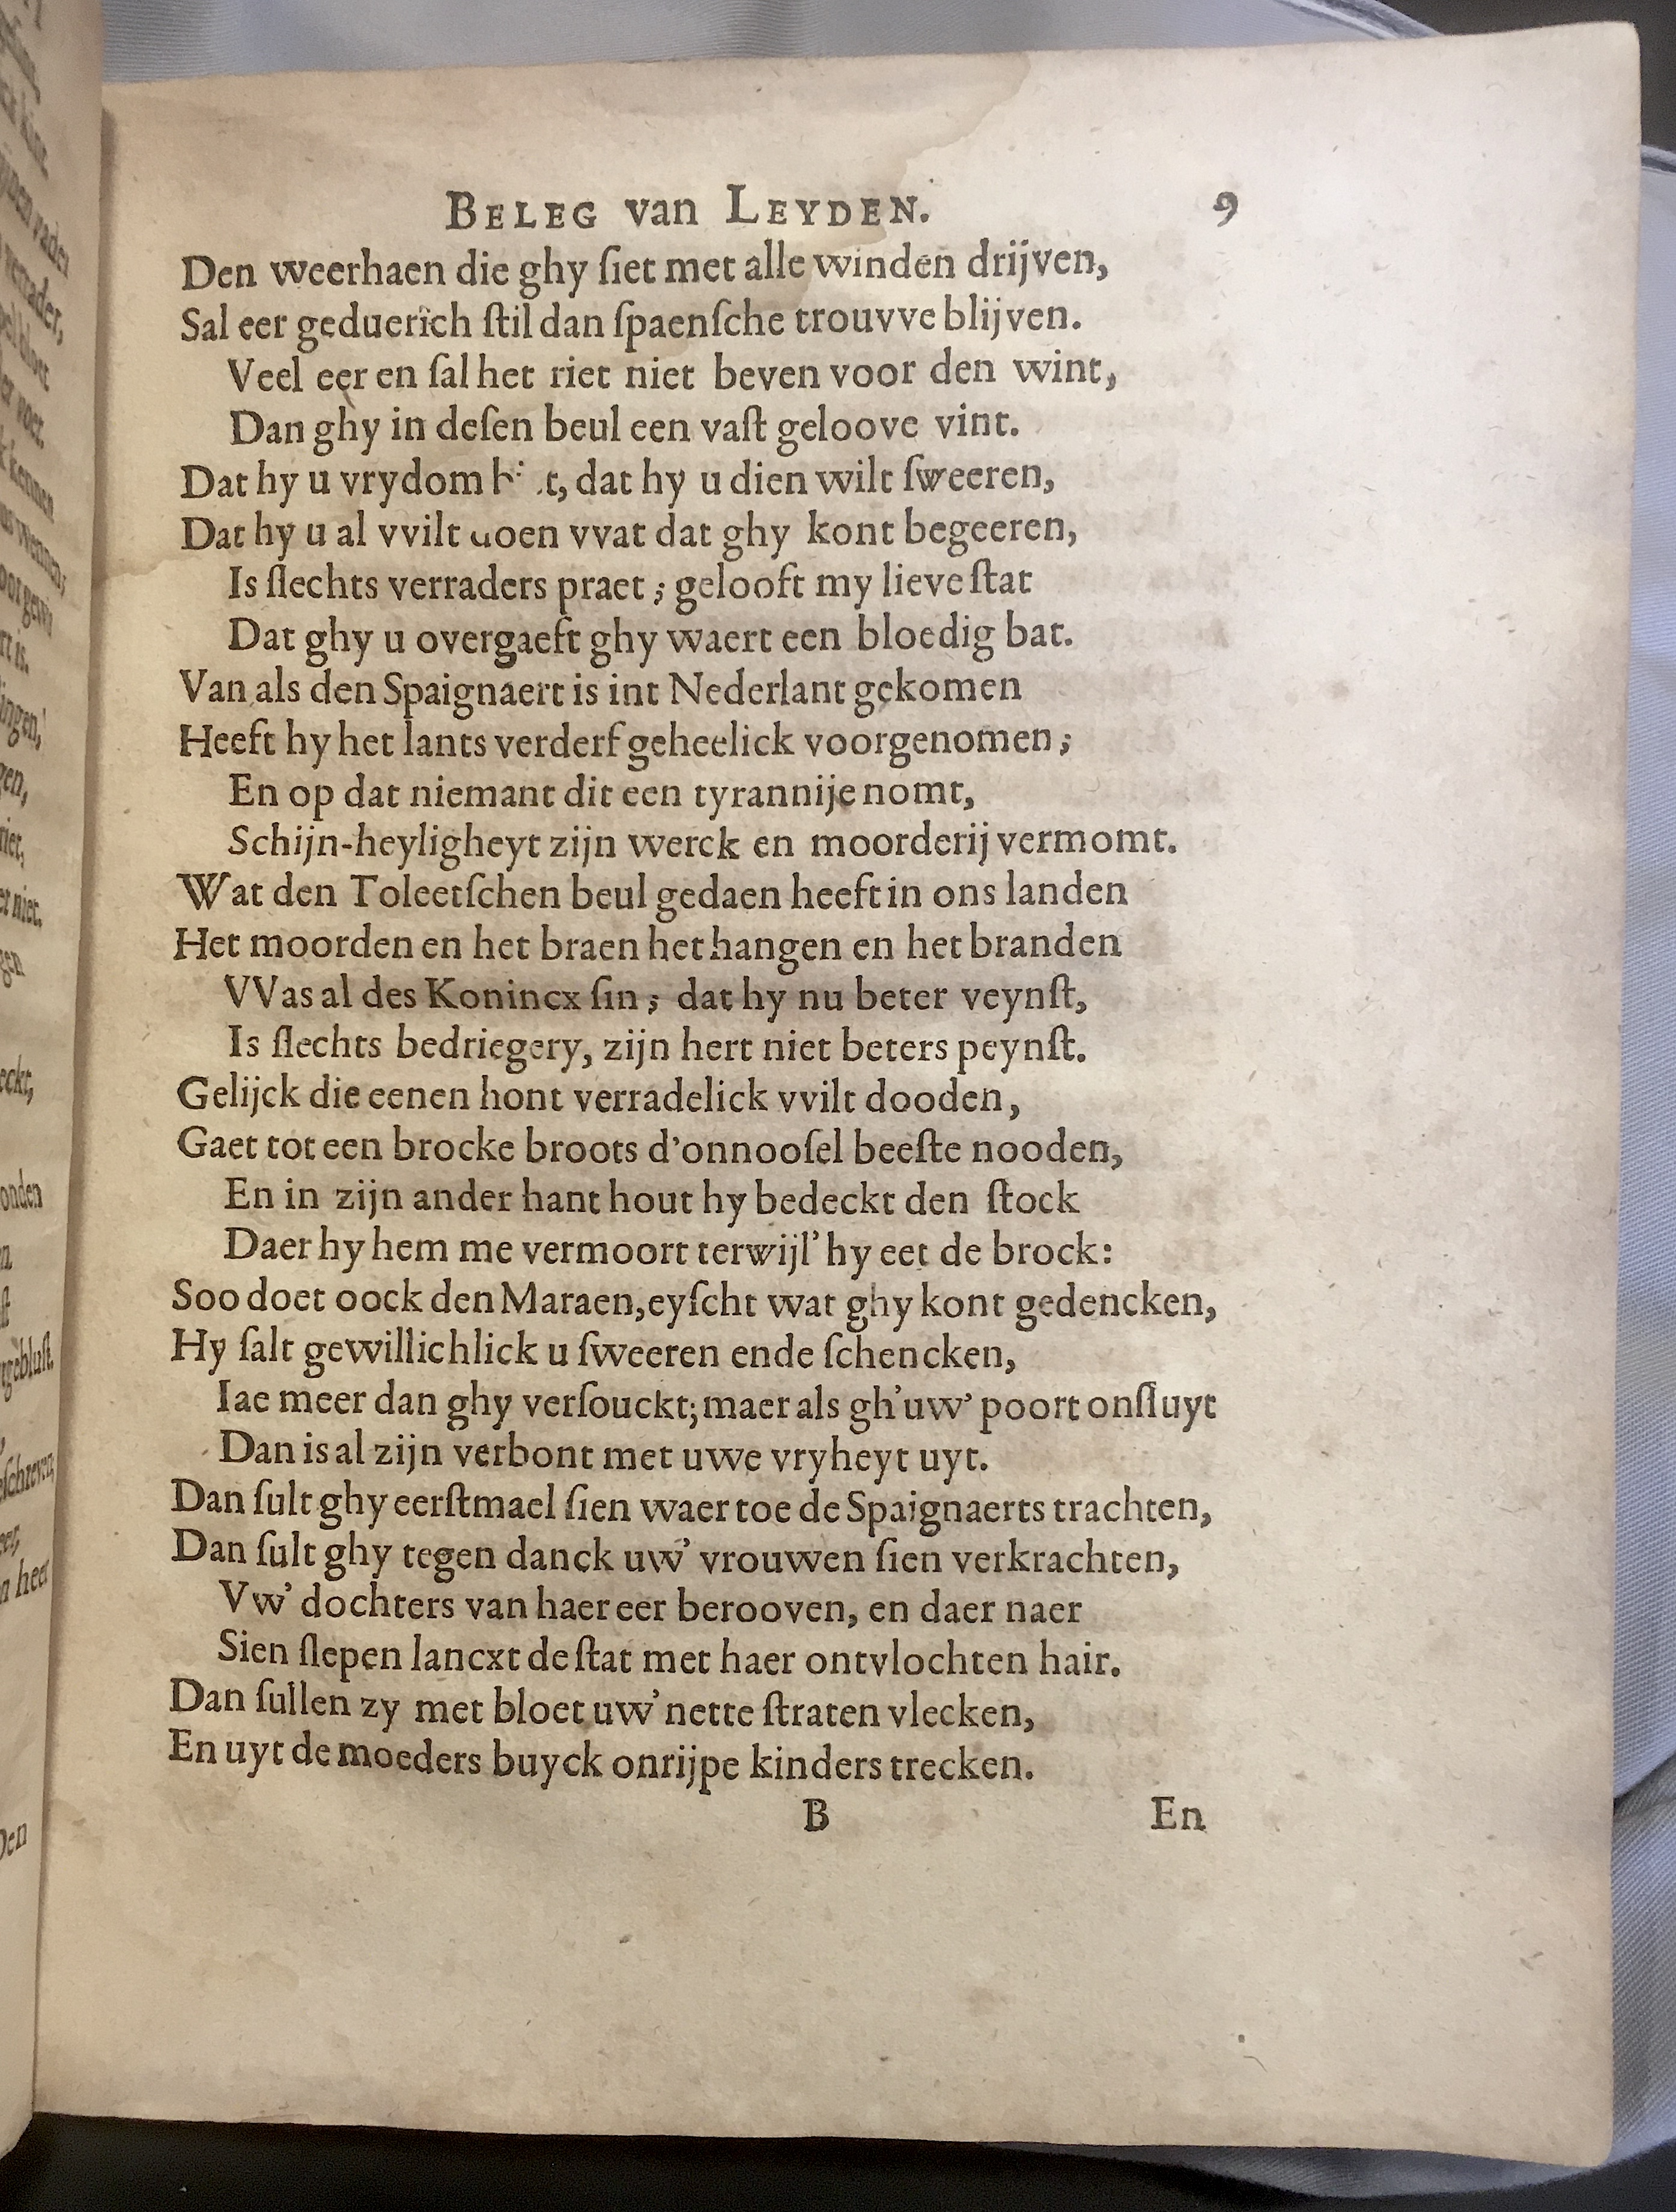 BELEG van LEYDEN. 9
Den weerhaen die ghy ſiet met alle winden drijven,
Sal eer geduerich ſtil dan ſpaenſche trouvve blijven.
Veel eer en ſal het riet niet beven voor den wint,
Dan ghy in deſen beul een vaſt geloove vint.
Dat hy u vrydom t, dat hy u dien wilt ſweeren,
Dat hy u al vvilt doen vvat dat ghy kont begeeren,
Is ſlechts verraders praet; gelooft my lieve ſtat
Dat ghy u overgaeft ghy waert een bloedig bat.
Van als den Spaignaert is int Nederlant gekomen
Heeft hy het lants verderf geheelick voorgenomen;
En op dat niemant dit een tyrannije nomt,
Schijn-heyligheyt zijn werck en moorderij vermomt.
Wat den Toleetſchen beul gedaen heeft in ons landen
Het moorden en het braen het hangen en het branden
VVas al des Konincx ſin; dat hy nu beter veynſt,
Is ſlechts bedriegery, zijn hert niet beters peynſt.
Gelijck die eenen hont verradelick vvilt dooden,
Gaet tot een brocke broots d'onnooſel beeſte nooden,
En in zijn ander hant hout hy bedeckt den ſtock
Daer hy hem me vermoort terwijl' hy eet de brock:
Soo doet oock den Maraen, eyſcht wat ghy kont gedencken,
Hy ſalt gewillichlick u ſweeren ende ſchencken,
Iae meer dan ghy verſouckt; maer als gh'uw' poort onſluyt
Dan is al zijn verbont met uwe vryheyt uyt.
Dan ſult ghy eerſtmael ſien waer toe de Spaignaerts trachten,
Dan ſult ghy tegen danck uw' vrouwen ſien verkrachten,
Vw' dochters van haer eer berooven, en daer naer
Sien ſlepen lancxt de ſtat met haer ontvlochten hair.
Dan ſullen zy met bloet uw' nette ſtraten vlecken,
En uyt de moeders buyck onrijpe kinders trecken.
B En